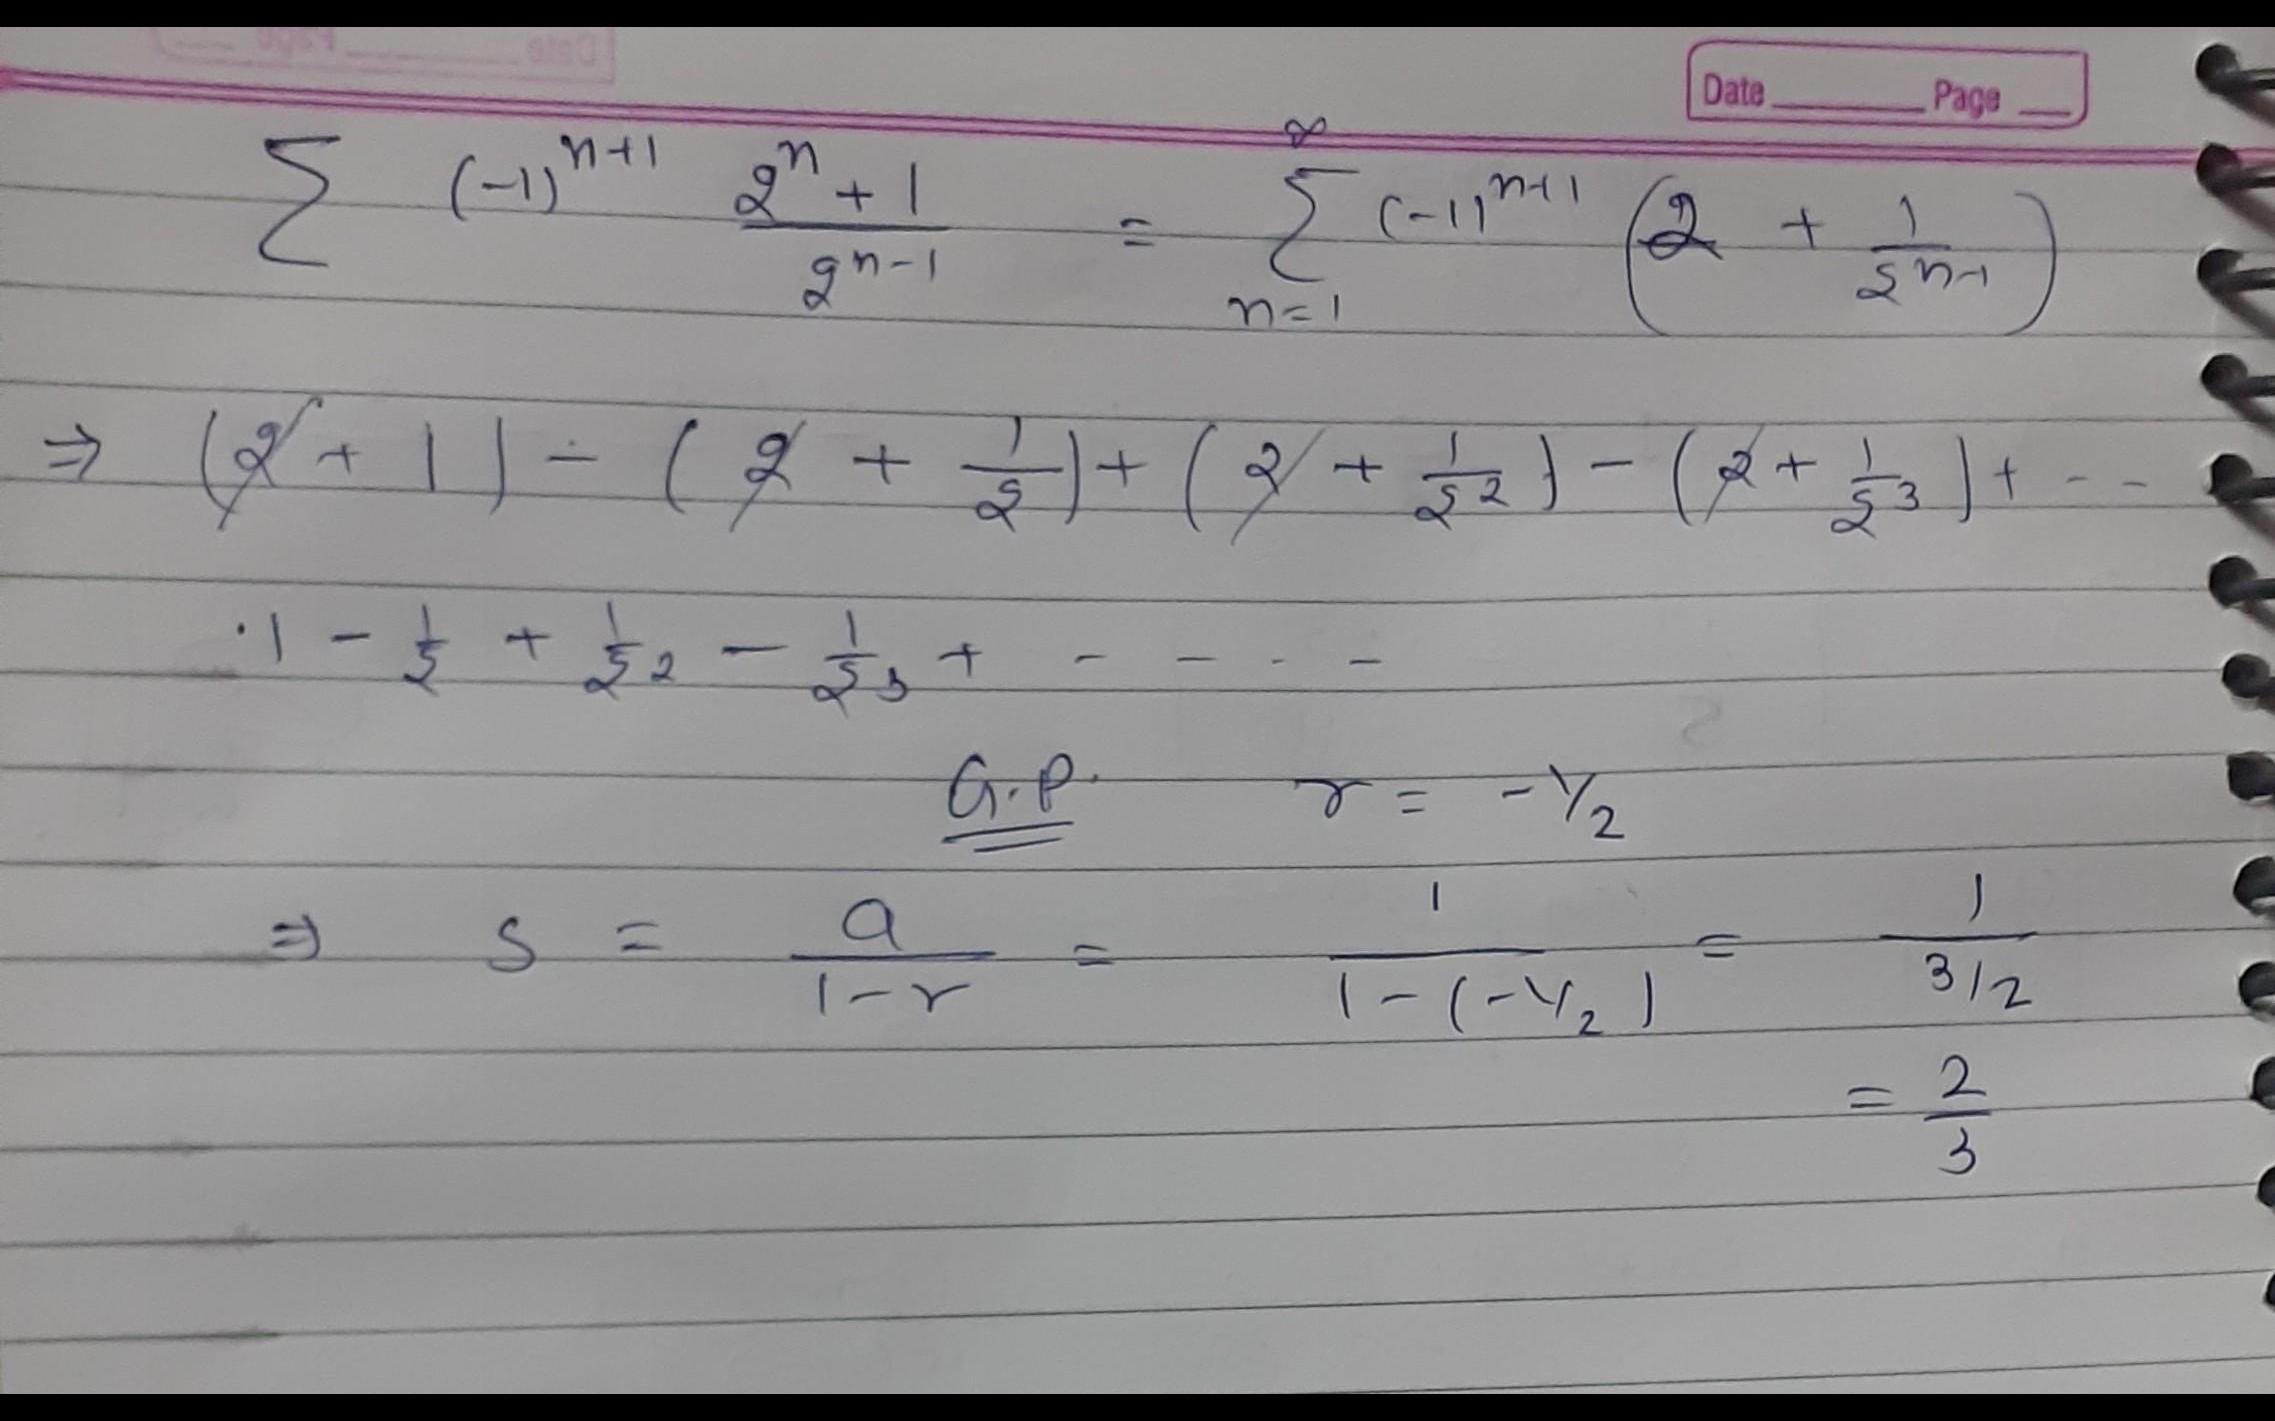 Date ______ Page __
∑ (-1)^{n+1} \frac{2^n + 1}{2^{n-1}} = ∑_{n=1}^{∞} (-1)^{n+1} (2 + \frac{1}{2^{n-1}})
⇒ (2 + 1) - (2 + \frac{1}{2}) + (2 + \frac{1}{2^2}) - (2 + \frac{1}{2^3}) + - -
· 1 - \frac{1}{2} + \frac{1}{2^2} - \frac{1}{2^3} + - - - -
G.P. r = -1/2
⇒ S = \frac{a}{1-r} = \frac{1}{1-(-1/2)} = \frac{1}{3/2}
= \frac{2}{3}